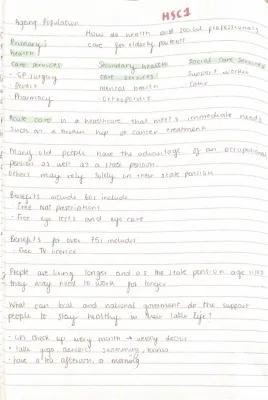 HSC1
Ageing Population
How do health and social care professionals
care for elderly patients?
Primary
health
care services
Secondary health
care services:
Social care services
- GP surgery
Support worker
- Dentist
mental health
carer
- Pharmacy
- Orthopaedics
Acute care is a healthcare that meets immediate needs
such as a broken hip or cancer treatment.
Many old people have the advantage of an occupational
pension as well as a state pension.
Others may rely solely on their state pension.
Benefits include 60s include
- Free NHS prescriptions
- Free eye tests and eye care
Benefits for over 75s includes
- Free TV licence
People are living longer and as the state pension age rises
they may need to work for longer
What can local and national government do the support
people to stay healthy in their later life?
- check up every month → weekly
- walk, yoga, aerobics, swimming, tennis
- have a tea afternoon or morning